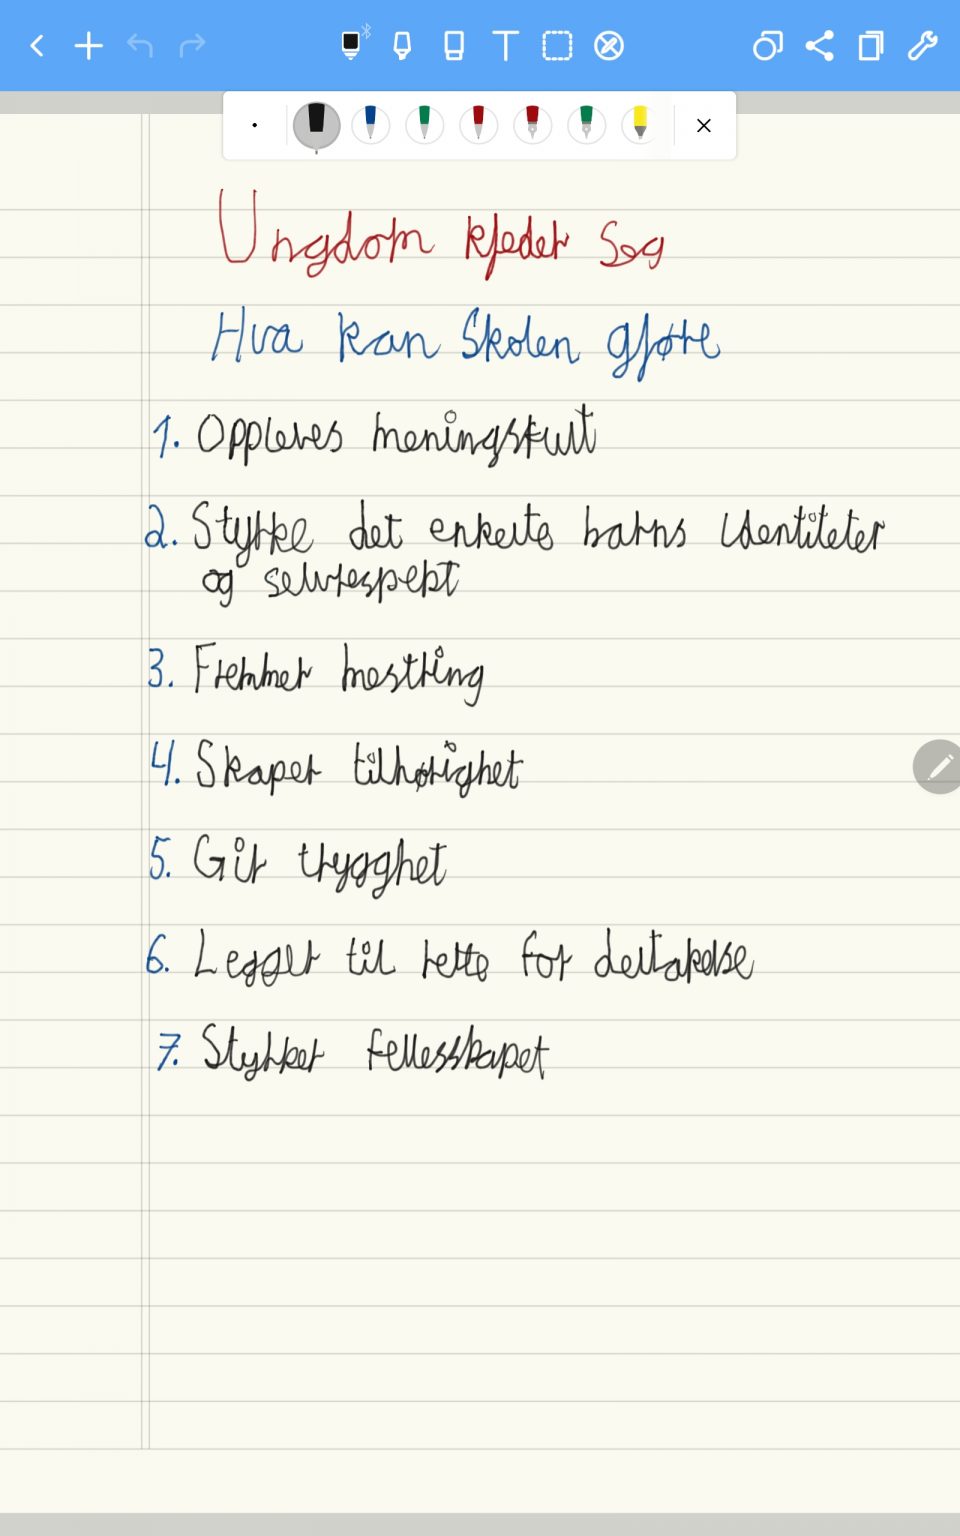 T
Ungdom kjeder seg
Hva kan Skolen gjøre
1. Oppleves meningsfullt
2. Styrke det enkelte barns identiteter
og selvrespekt
3. Fremmer mestring
4. Skaper tilhørighet
5. Gir trygghet
6. Legger til rette for deltakelse
7. Styrker fellesskapet